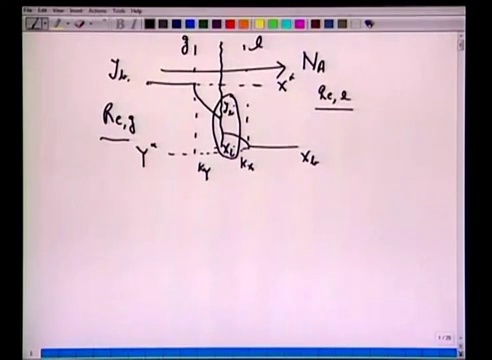 File Edit View Insert Actions Tools Help
g l
y_b N_A
x*
Re,l
Re,g
y_i
y* x_i x_b
k_y k_x
1/25